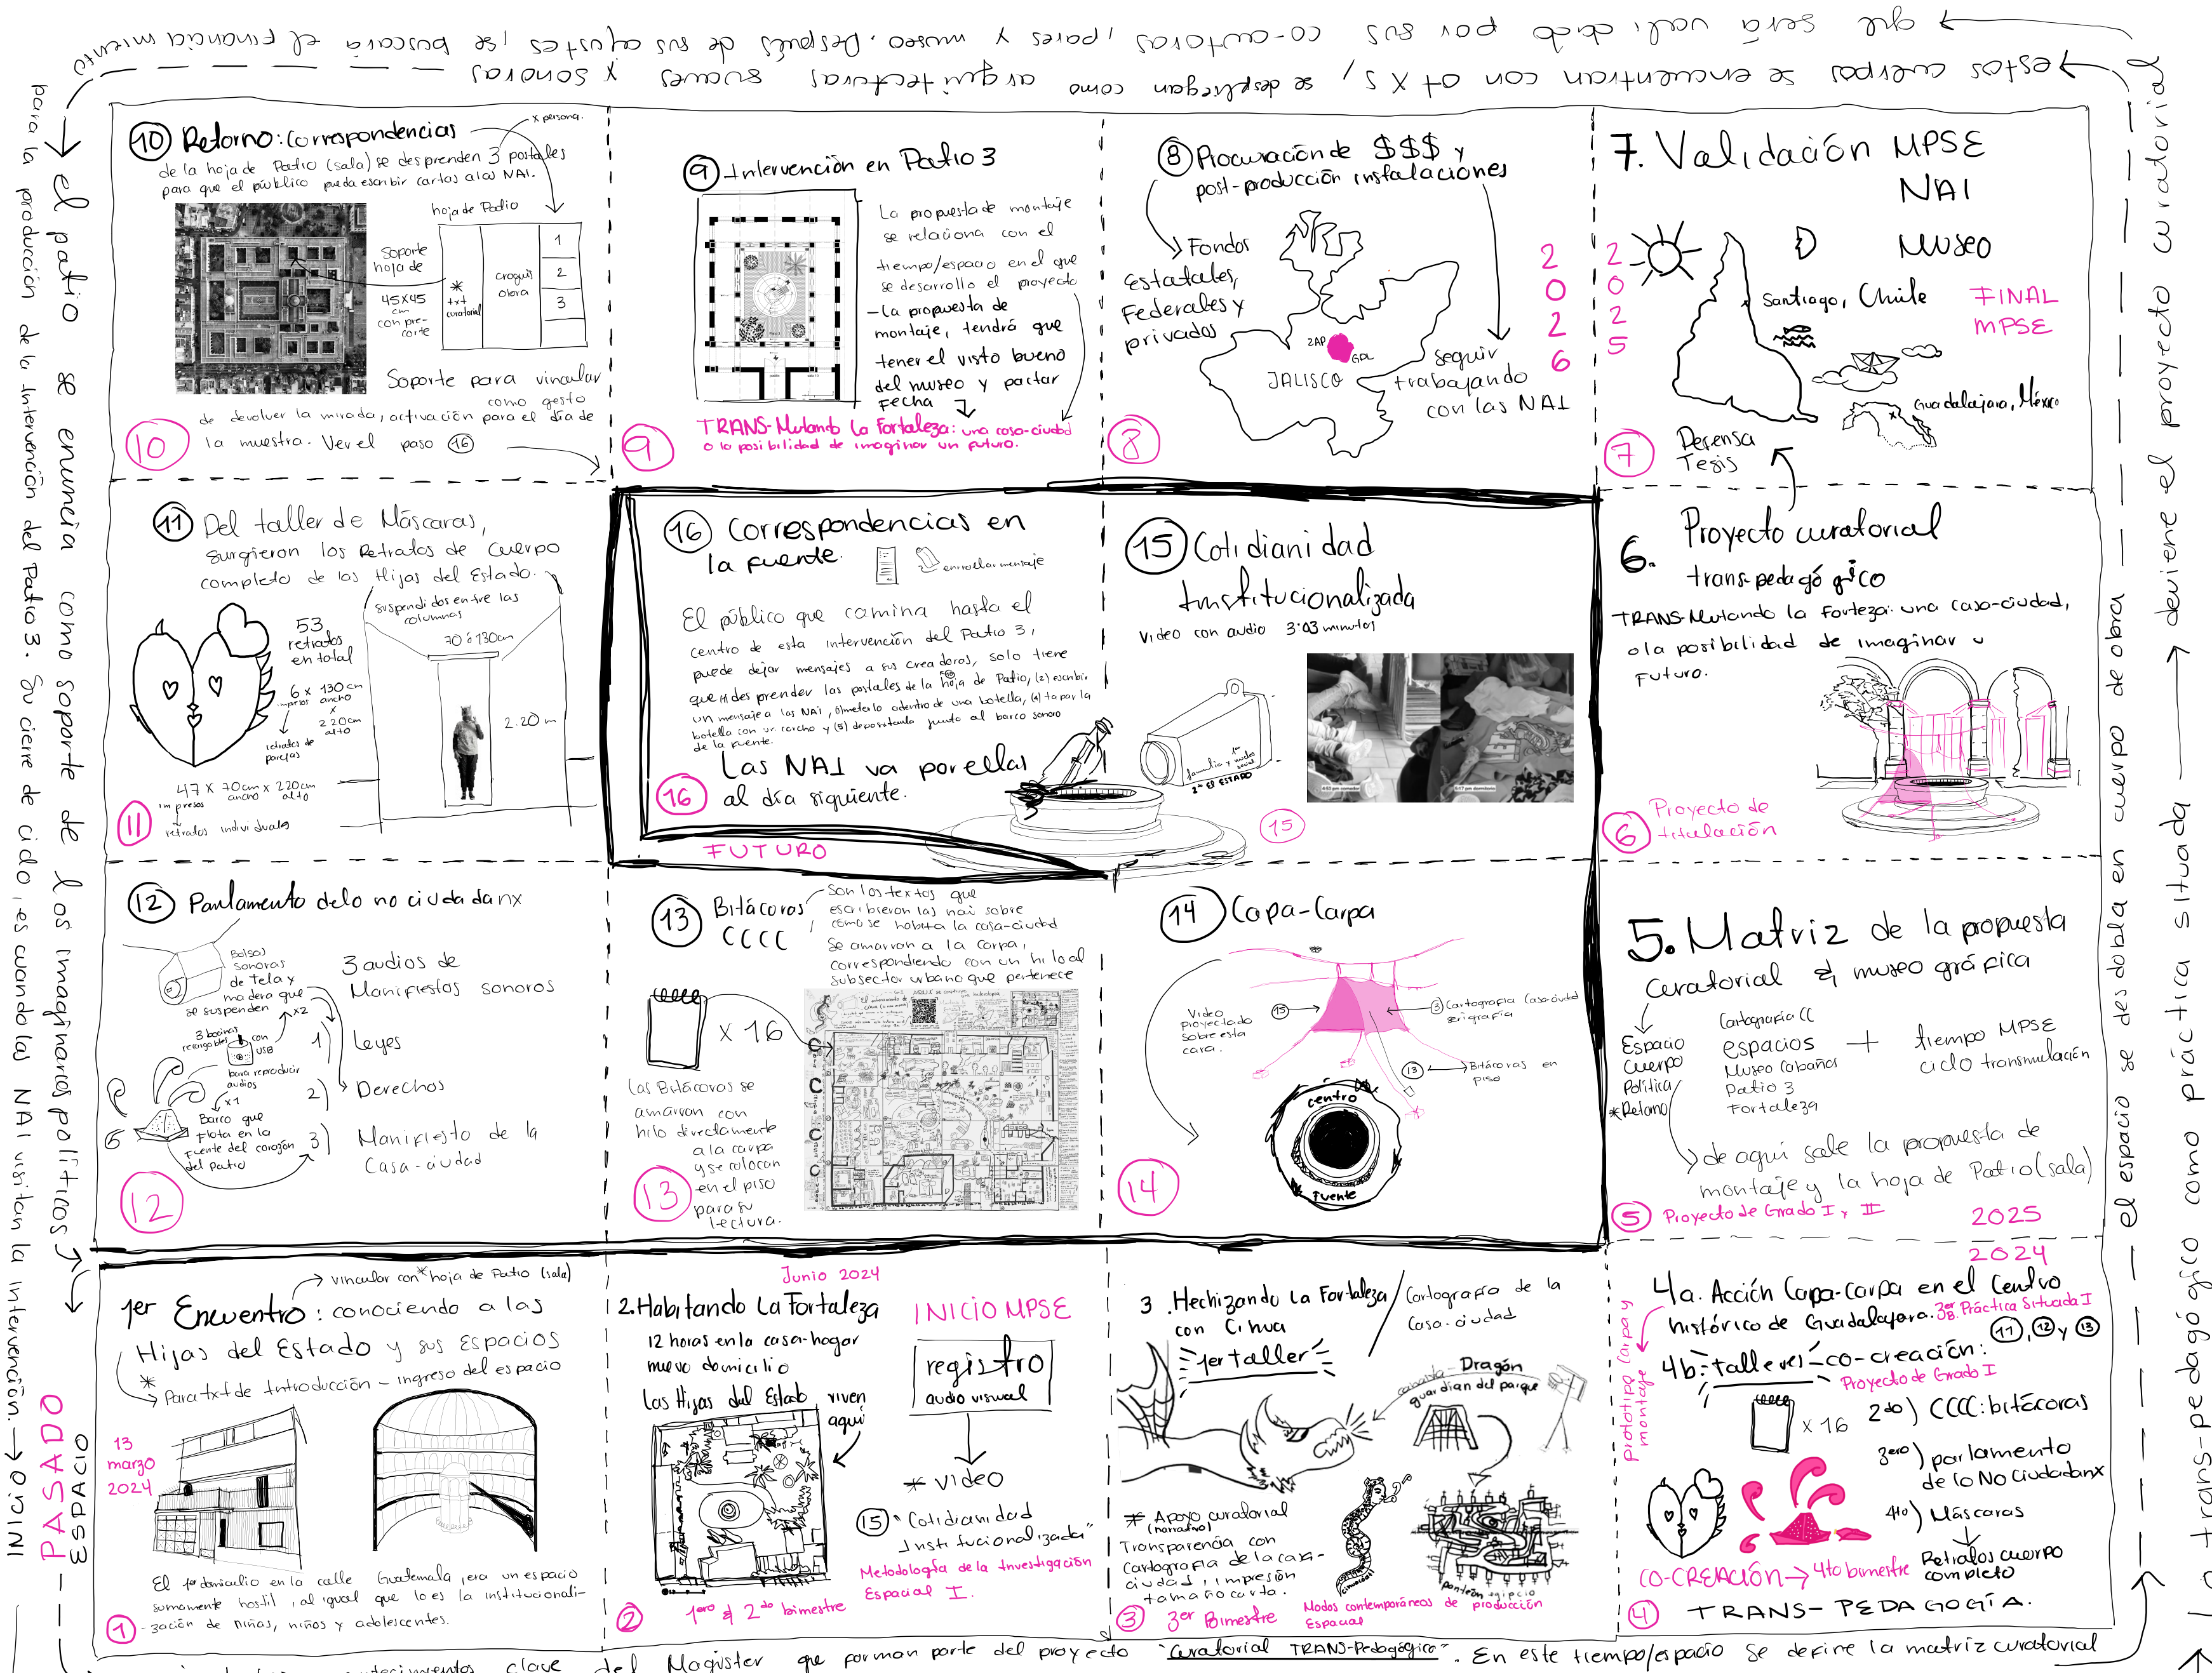 → que será validado por sus co-autoras, pares y museo. Después de sus ajustes, se buscará el financiamiento
→ estos cuerpos se encuentran con otxs, se despliegan como arquitecturas suaves y sonoras
para la producción de la Intervención del Patio 3. Su cierre de ciclo, es cuando las NAI visitan la Intervención. → 0 INI
→ el patio se enuncia como soporte de los imaginarios políticos
PASADO
ESPACIO
⑩ Retorno: Correspondencias
x persona.
de la hoja de Patio (sala) se desprenden 3 postales
para que el público pueda escribir cartas a las NAI.
hoja de Patio
Soporte
hoja de
45X45
cm
con pre-
corte
*
txt
curatorial
croquis
obra
1
2
3
Soporte para vincular
como gesto
de devolver la mirada, activación para el día de
la muestra. Ver el paso ⑯
⑩
⑨ Intervención en Patio 3
La propuesta de montaje
se relaciona con el
tiempo/espacio en el que
se desarrollo el proyecto
- La propuesta de
montaje, tendrá que
tener el visto bueno
del museo y pactar
Fecha
TRANS-Mutando La Fortaleza: una casa-ciudad
o la posibilidad de imaginar un futuro.
⑨
⑧ Procuración de $$$ y
post-producción instalaciones
Fondos
Estatales,
Federales y
privados
ZAP
GDL
JALISCO
seguir
trabajando
con las NAI
2026
⑧
7. Validación MPSE
NAI
MUSEO
2025
Santiago, Chile
FINAL
MPSE
Guadalajara, México
Defensa
Tesis
⑦
⑪ Del taller de Máscaras,
surgieron los Retratos de Cuerpo
completo de las Hijas del Estado.
suspendidos entre las
columnas
53
retratos
en total
70 ó 130cm
6 x 130 cm
impresos ancho
x
220cm
alto
retratos de
parejas
2.20 m
47 x 70cm x 220cm
impresos ancho alto
retratos individuales
⑪
⑯ Correspondencias en
la fuente.
enrrollar mensaje
El público que camina hasta el
centro de esta intervención del Patio 3,
puede dejar mensajes a sus creadoras, solo tiene
que (1) desprender las postales de la hoja de Patio, (2) escribir
un mensaje a las NAI, (3) meterlo adentro de una botella, (4) tapar la
botella con un corcho y (5) depositarla junto al barco sonoro
de la fuente.
Las NAI va por ellas
al día siguiente.
⑯
FUTURO
⑮ Cotidianidad
Institucionalizada
Video con audio 3:03 minutos
1ro
familia y nucleo
social
2do ES ESTADO
4:03 pm comedor
6:17 pm dormitorio
⑮
6. Proyecto curatorial
trans-pedagógico
TRANS-Mutando la Forteza: una casa-ciudad,
o la posibilidad de imaginar u
Futuro.
Proyecto de
titulación
⑥
⑫ Parlamento de lo no ciudadanx
Bolsas
sonoras
de Tela y
madera que
se suspenden
x2
3 audios de
Manifiestos sonoros
3 bocinas
recargables
con
USB
para reproducir
audios
x1
Barco que
Flota en la
Fuente del corazón
del patio
1) Leyes
2) Derechos
3) Manifiesto de la
Casa-ciudad
⑫
⑬ Bitácoras
CCCC
Son los textos que
escribieron las nai sobre
cómo se habita la casa-ciudad
Se amarran a la carpa,
correspondiendo con un hilo al
subsector urbano que pertenece
x 16
Las Bitácoras se
amarran con
hilo directamente
a la carpa
y se colocan
en el piso
para su
lectura.
C
C
C
C
⑬
⑭ Capa-Carpa
Video
proyectado
sobre esta
cara.
⑮
③ Cartografía Casa-ciudad
serigrafía
⑬ Bitácoras en
piso
centro
fuente
⑭
5. Matriz de la propuesta
curatorial & museográfica
Espacio
Cuerpo
Política
*Retorno
Cartografía CC
espacios
Museo Cabañas
Patio 3
Fortaleza
+
tiempo MPSE
ciclo transmutación
de aquí sale la propuesta de
montaje y la hoja de Patio (sala)
⑤ Proyecto de Grado I y II
2025
vincular con * hoja de Patio (sala)
1er Encuentro: conociendo a las
Hijas del Estado y sus Espacios
* Para txt de Introducción - ingreso del espacio
13
marzo
2024
El 1er domicilio en la calle Guatemala, era un espacio
sumamente hostil, al igual que lo es la institucionali-
zación de niñas, niños y adolescentes.
①
Junio 2024
2. Habitando La Fortaleza
INICIO MPSE
12 horas en la casa-hogar
nuevo domicilio
Las Hijas del Estado viven
aquí
registro
audio visual
* video
⑮ "Cotidianidad
Institucionalizada"
Metodología de la Investigación
Espacial I.
② 1ero & 2do bimestre
3. Hechizando La Fortaleza
con Cihua
Cartografía de la
Casa-ciudad
1er taller
Dragón
guardian del parque
* Apoyo curatorial
(narrativo)
Transparencia con
Cartografía de la casa-
ciudad, impresión
tamaño carta.
③ 3er Bimestre
Modos contemporáneos de producción
Espacial
2024
4a. Acción Capa-Carpa en el Centro
histórico de Guadalajara. 3er B. Práctica Situada I
⑪, ⑫ y ⑬
prototipo Carpa y
montaje
4b. talleres - co-creación:
Proyecto de Grado I
x 16
2do) CCCC: bitácoras
3ero) parlamento
de lo No Ciudadanx
4to) Máscaras
Retratos cuerpo
completo
CO-CREACIÓN → 4to bimestre
④ TRANS-PEDAGOGÍA.
clave del Magíster que forman parte del proyecto "Curatorial TRANS-Pedagógico". En este tiempo/espacio se define la matriz curatorial
el espacio se desdobla en cuerpo de obra
trans-pedagógico como práctica situada → deviene el proyecto curatorial